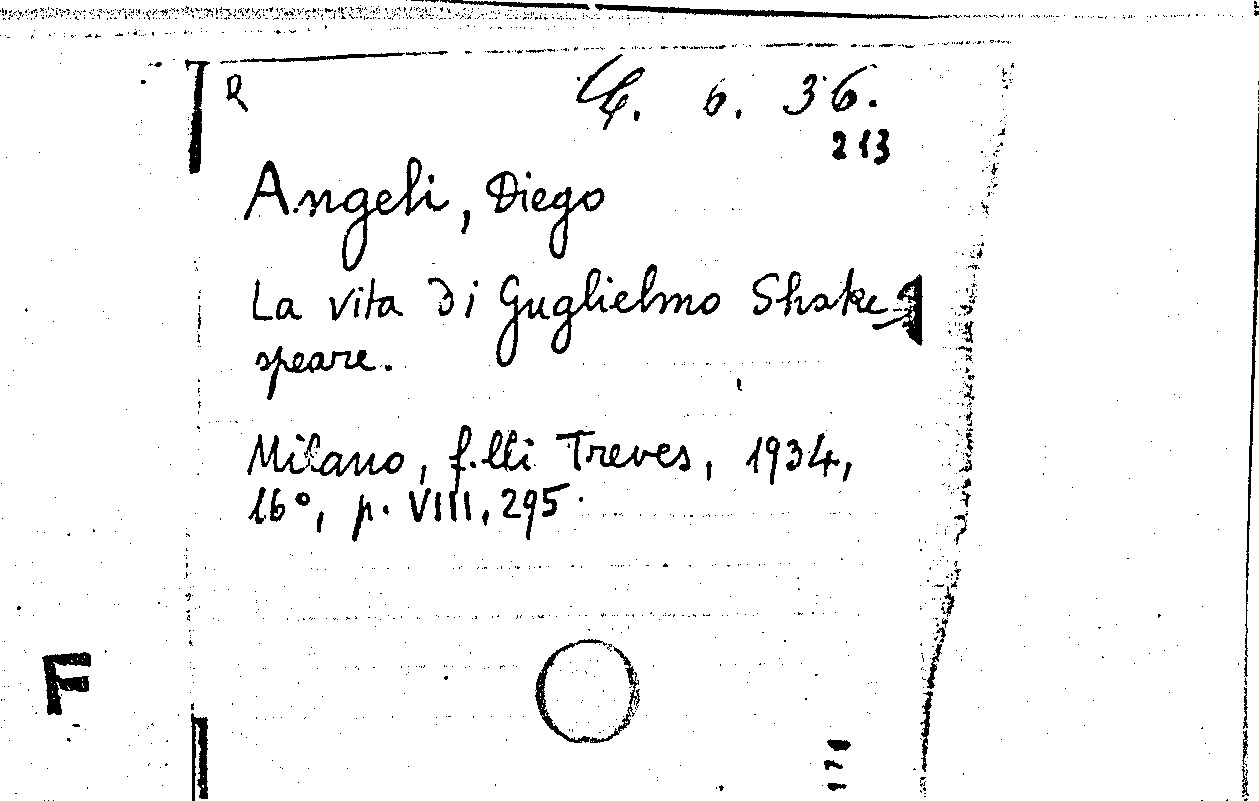 R
6. 36.
213
Angeli, Diego
La vita di Guglielmo Shake
speare.
Milano, f.lli Treves, 1934,
16°, p. VIII, 295.
F